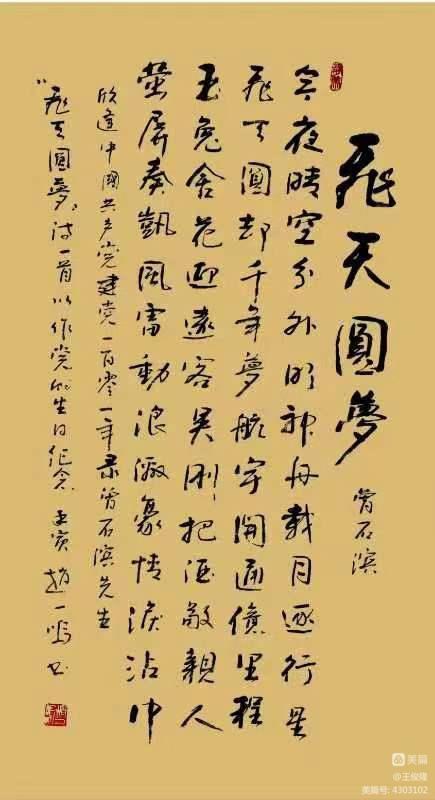 飛天圓夢
曾石滨
今夜晴空分外明神舟載月逐行星
飛天圓却千年夢航宇開通億里程
玉兔含花迎遠客吴刚把酒敬親人
螢屏奏凱風雷動浪激豪情淚沾巾
欣逢中國共产党建党一百零一年录曾石滨先生
"飛天圓夢"诗一首以作党的生日纪念 壬寅 趙一鸣书
美篇
@王俊隆
美篇号: 4303102